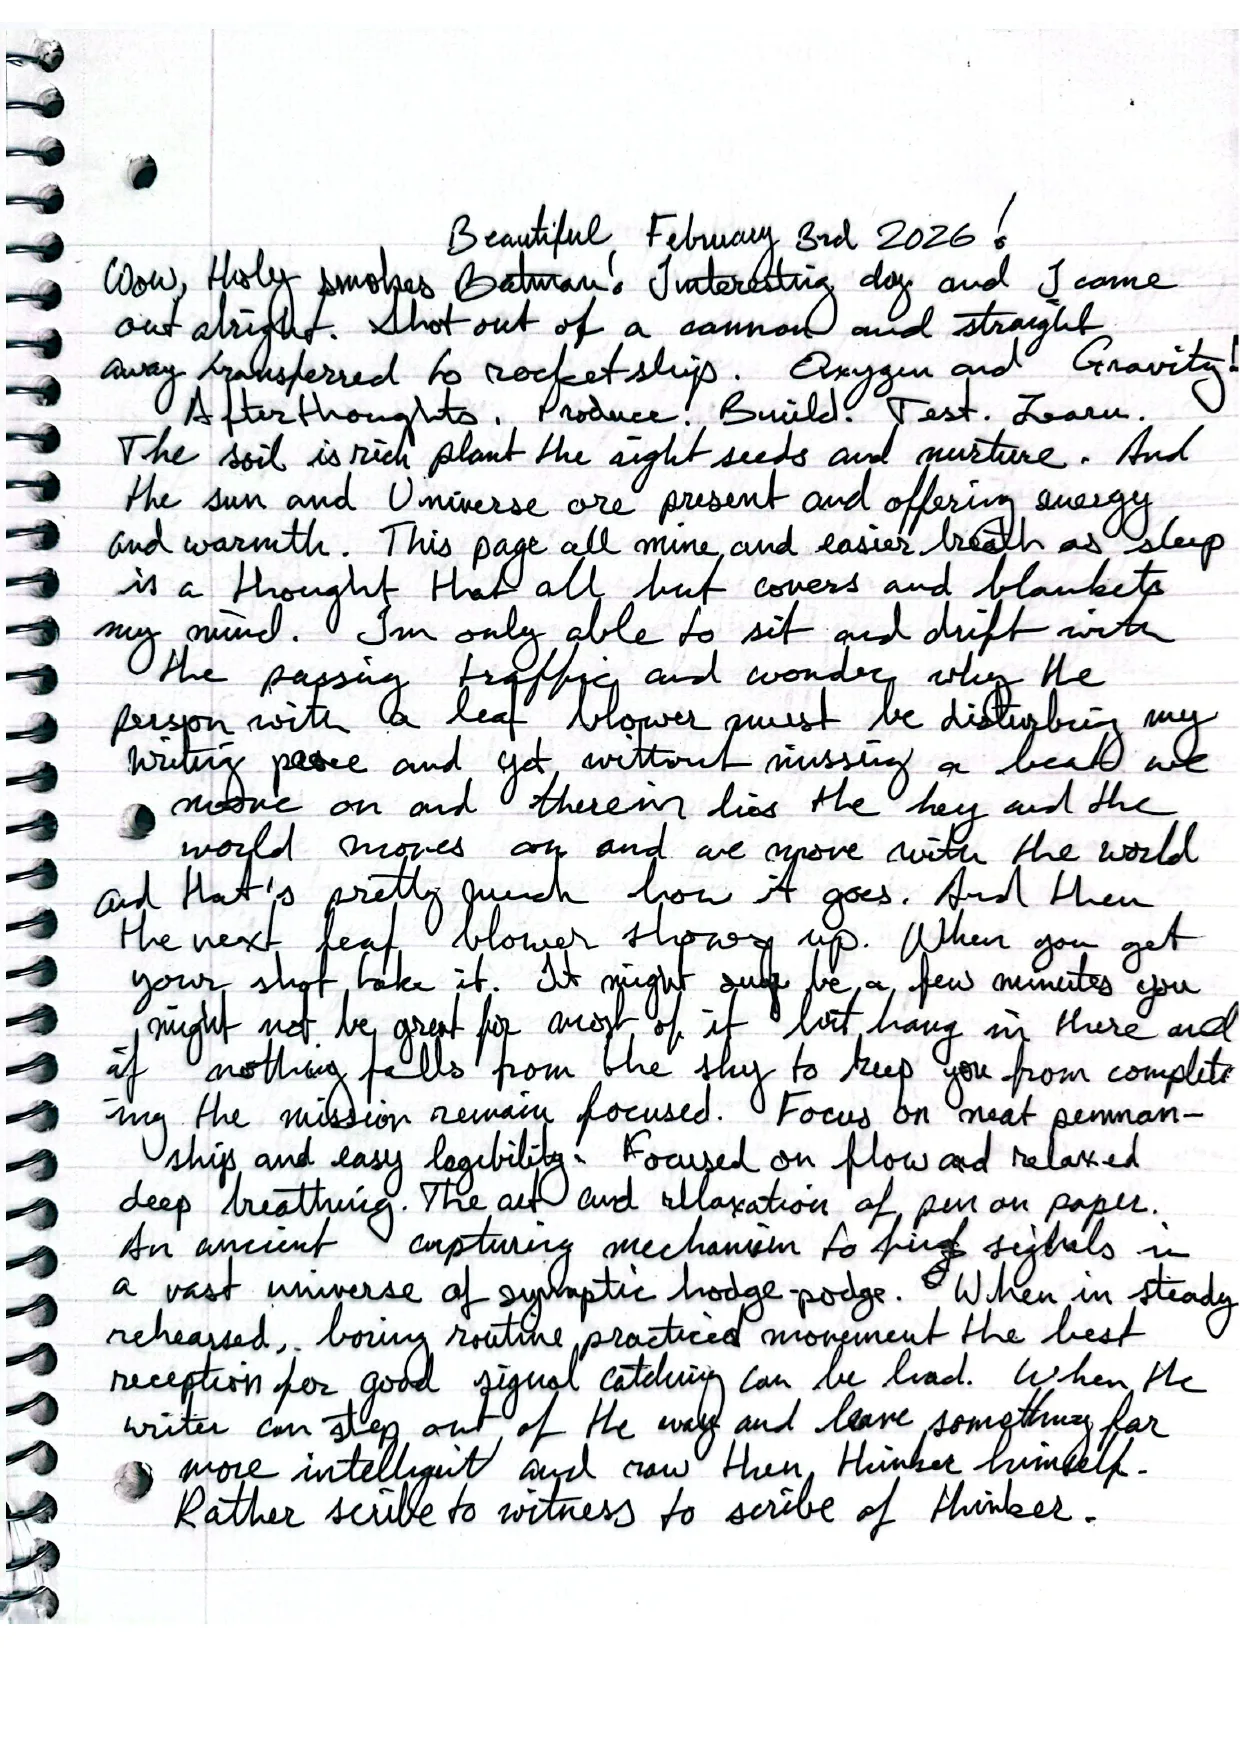 Beautiful, February 3rd 2026!
Wow, Holy smokes Batman! Interesting day and I came
out alright. Shot out of a cannon and straight
away transferred to rocketship. Oxygen and Gravity!
Afterthoughts. Produce! Build. Test. Learn.
The soil is rich plant the right seeds and nurture. And
the sun and Universe are present and offering energy
and warmth. This page all mine, and easier breath as sleep
is a thought that all but covers and blankets
my mind. I'm only able to sit and drift with
the passing traffic and wonder why the
person with a leaf blower must be disturbing my
writing peace and yet, without missing a beat we
move on and therein lies the key and the
world moves on and we move with the world
and that's pretty much how it goes. And then
the next leaf blower shows up. When you get
your shot, take it. It might be a few minutes you
might not be great for most of it but hang in there and
if nothing falls from the sky to keep you from complete
ing the mission remain focused. Focus on neat penman-
ship, and easy legibility. Focused on flow and relaxed
deep breathing. The act and rellaxation of pen on paper.
An ancient capturing mechanism to signals in
a vast universe of synaptic hodge-podge. When in steady
rehearsed, boring routine, practiced movement the best
reception for good signal catching can be had. When the
writer can step out of the way and leave something far
more intelligent and raw then, thinker himself.
Rather scribe to witness to scribe of thinker.